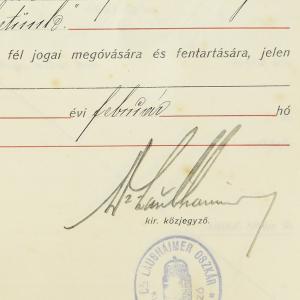 fél jogai megóvására és fentartására, jelen
évi február hó
Dr Laubhaimer
kir. közjegyző.
Dr LAUBHAIMER OSZKÁR